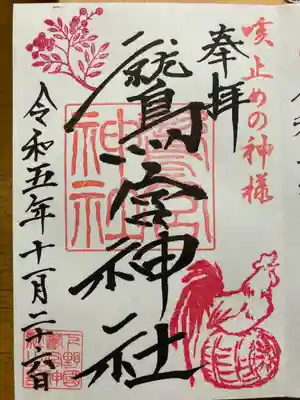 咳止めの神様
奉拝
鷲宮神社
令和五年十一月二十六日